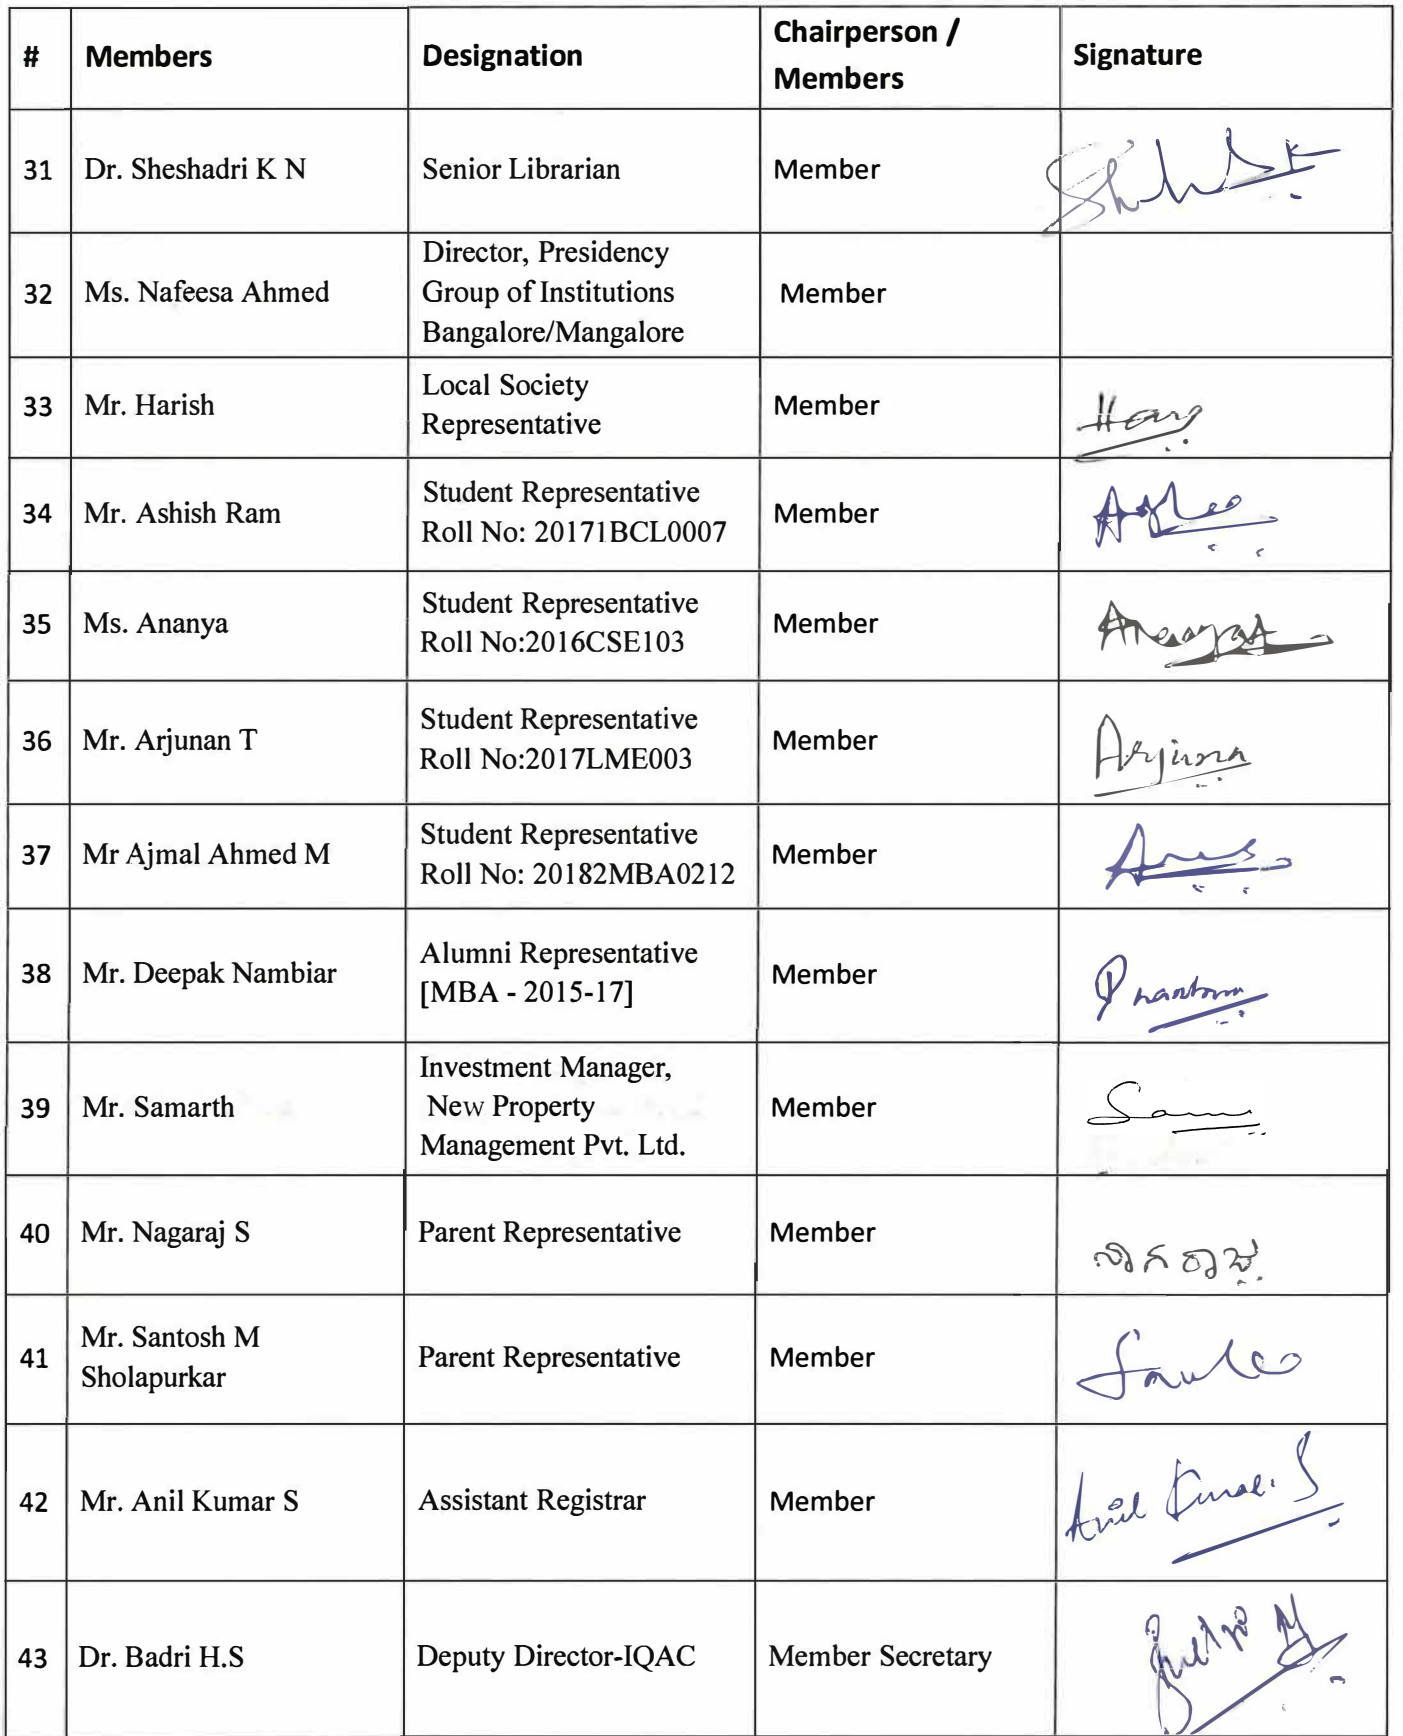 # Members Designation Chairperson / Members Signature
31 Dr. Sheshadri K N Senior Librarian Member
32 Ms. Nafeesa Ahmed Director, Presidency Group of Institutions Bangalore/Mangalore Member
33 Mr. Harish Local Society Representative Member
34 Mr. Ashish Ram Student Representative Roll No: 20171BCL0007 Member
35 Ms. Ananya Student Representative Roll No:2016CSE103 Member
36 Mr. Arjunan T Student Representative Roll No:2017LME003 Member Arjuna
37 Mr Ajmal Ahmed M Student Representative Roll No: 20182MBA0212 Member
38 Mr. Deepak Nambiar Alumni Representative [MBA - 2015-17] Member
39 Mr. Samarth Investment Manager, New Property Management Pvt. Ltd. Member
40 Mr. Nagaraj S Parent Representative Member ನಾಗರಾಜು
41 Mr. Santosh M Sholapurkar Parent Representative Member
42 Mr. Anil Kumar S Assistant Registrar Member Anil Kumar. S
43 Dr. Badri H.S Deputy Director-IQAC Member Secretary